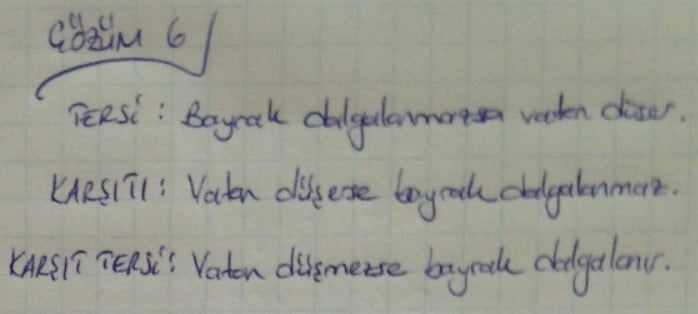 ÇÖZÜM 6
TERSİ : Bayrak dalgalanmazsa vatan düşer.
KARŞITI : Vatan düşerse bayrak dalgalanmaz.
KARŞIT TERSİ : Vatan düşmezse bayrak dalgalanır.